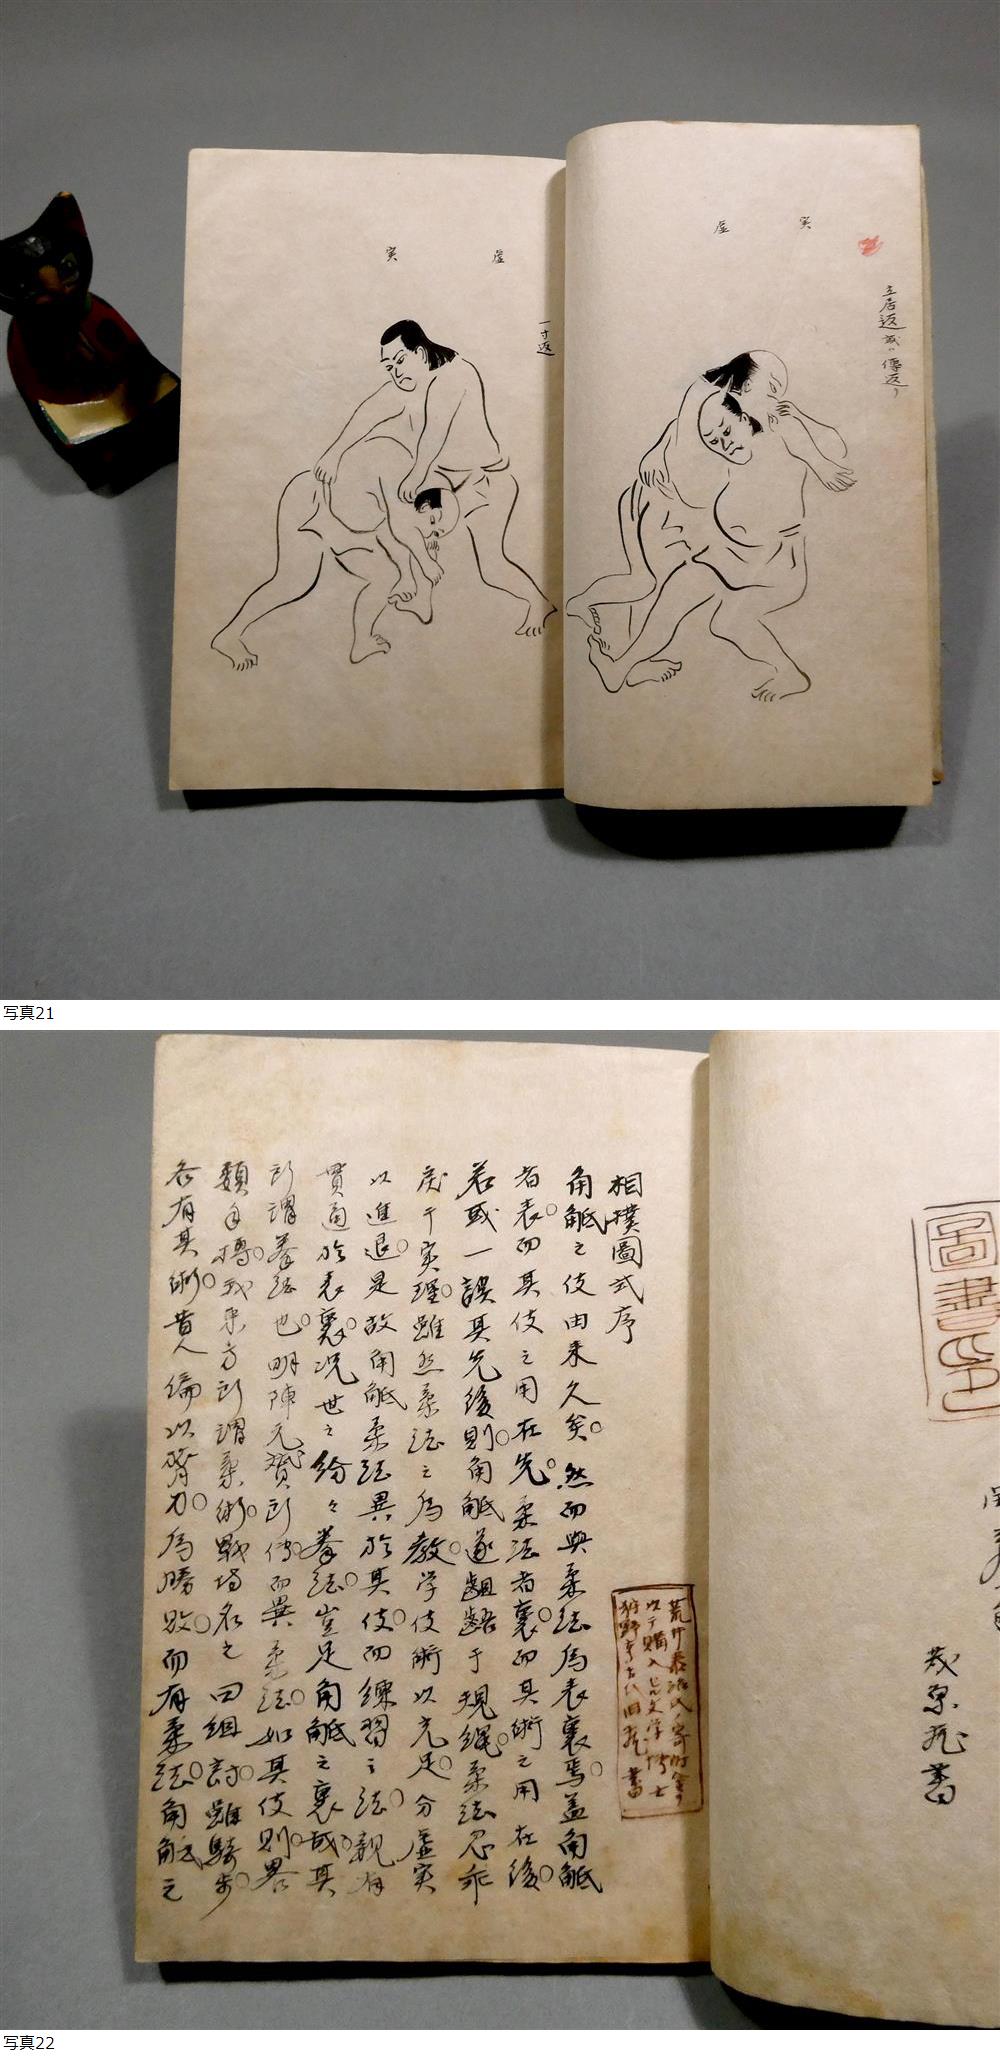 実
虚
立居返或ハ傳返り
虚
実
一寸返
写真21
圖書印
蔵書
相撲圖式序
角觝之伎由来久矣然而與柔法為表裏焉盖角觝
者表而其伎之用在先柔法者裏而其術之用在後
若或一誤其先後則角觝遂齟齬于規縄柔法忽乖
戻于実理雖然柔法之為教学伎術以充足分虚実
以進退是故角觝柔法異於其伎而練習之法親有
貫通於表裏况世之紛々拳法豈足角觝之裏或其
所謂拳法也明陳元贇所傳而異柔法如其伎則畧
類手搏我東方所謂柔術戦場名之曰組討雖騎歩
各有其術貴人偏以膂力為勝敗而有柔法角觝之
荒井泰治氏ノ寄附金ヲ
以テ購入セル文学博士
狩野亨吉氏旧蔵書
写真22